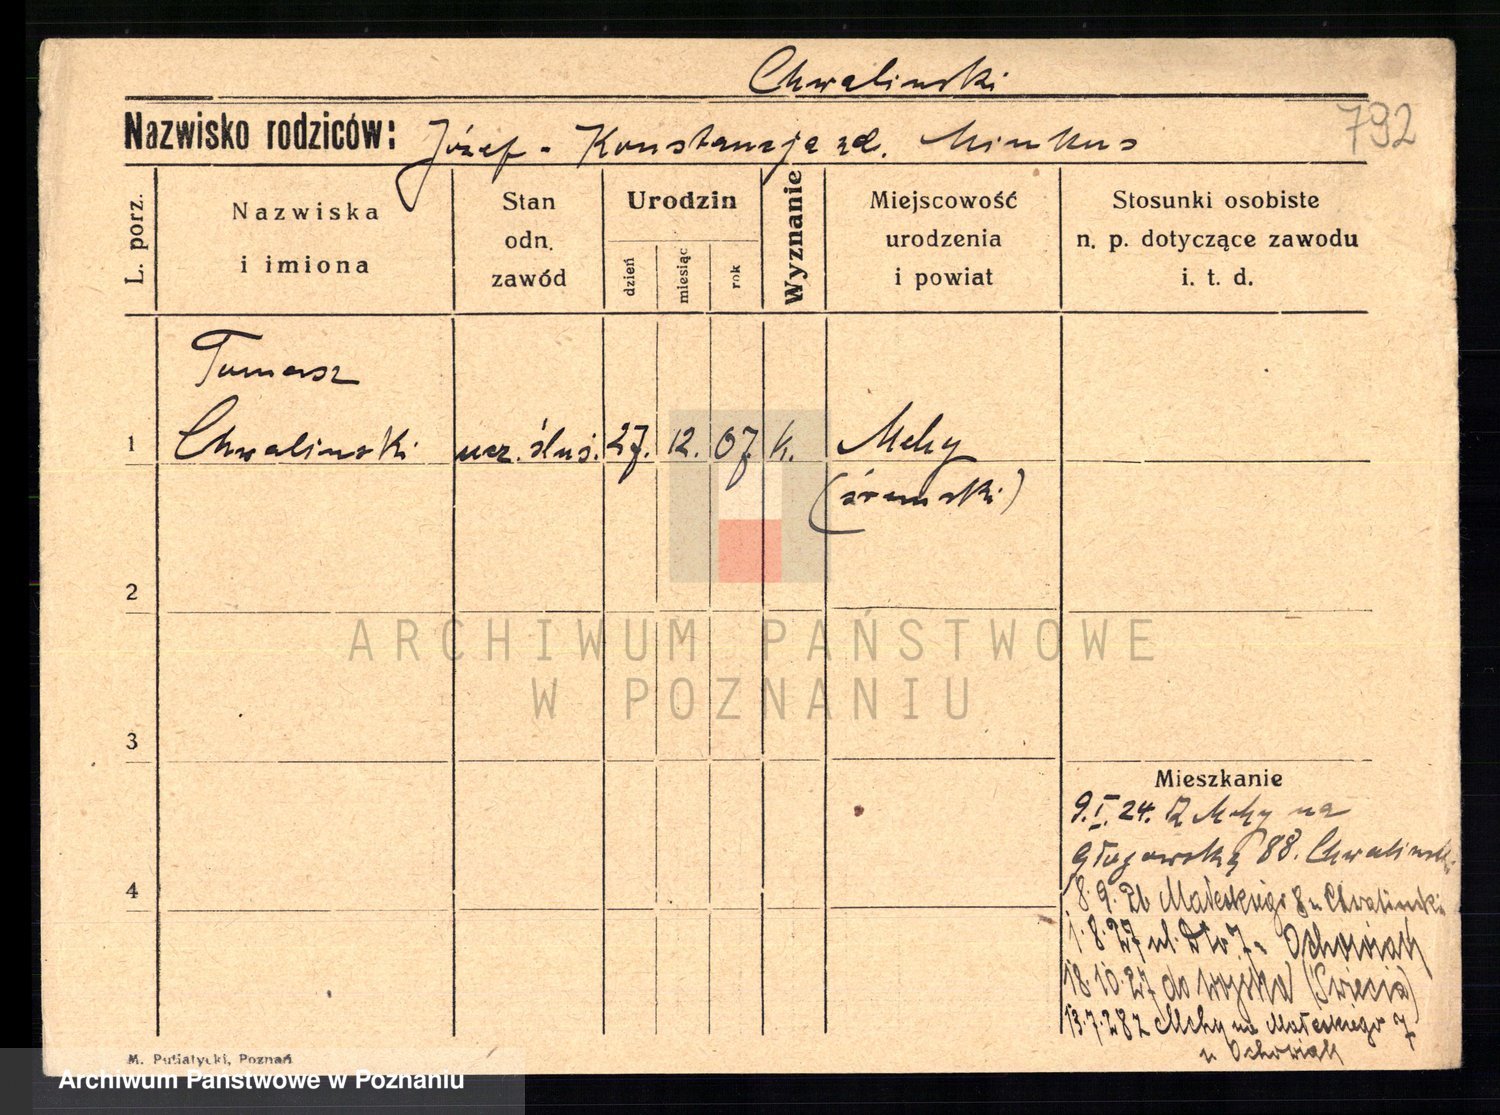 Chwalinski
792
Nazwisko rodziców: Józef - Konstancja zd. Minkus
L. porz.
Nazwiska
i imiona
Stan
odn.
zawód
Urodzin
dzień
miesiąc
rok
Wyznanie
Miejscowość
urodzenia
i powiat
Stosunki osobiste
n. p. dotyczące zawodu
i. t. d.
Tomasz
1 Chwalinski ucz. ślus. 27. 12. 07. k. Mchy
(śremski)
2
3
4
ARCHIWUM PAŃSTWOWE
W POZNANIU
Mieszkanie
9.I.24. Z Mchy na
Głogowską 88. Chwalinski
8.9.26 Małeckiego 8 u Chwalinski
1.8.27 ul. 7 u Ochowiak
18.10.27 do wojska
13.7.28 z Mchy na Małeckiego 7
u Ochowiak
M. Putiatycki, Poznań
Archiwum Państwowe w Poznaniu